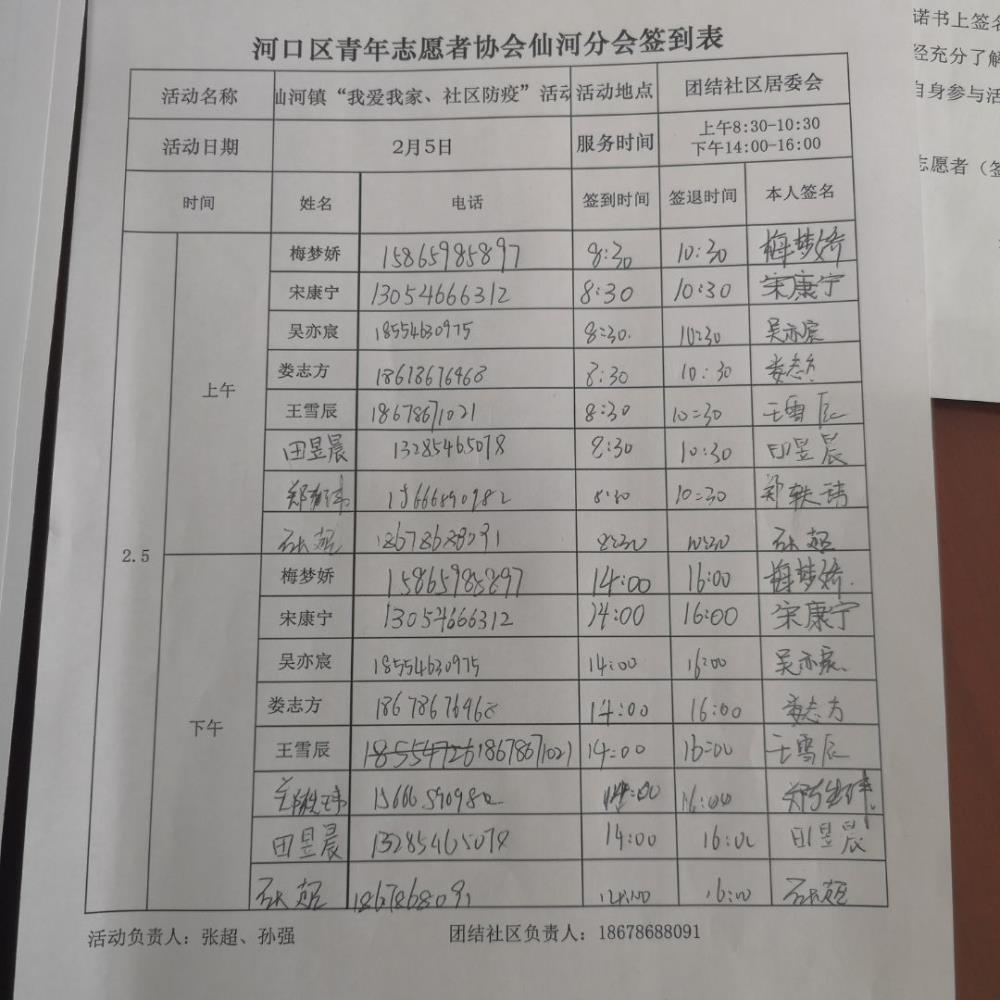 河口区青年志愿者协会仙河分会签到表
活动名称 仙河镇“我爱我家、社区防疫”活动 活动地点 团结社区居委会
活动日期 2月5日 服务时间 上午8:30-10:30
下午14:00-16:00
时间 姓名 电话 签到时间 签退时间 本人签名
2.5
上午
梅梦娇 15865985897 8:30 10:30 梅梦娇
宋康宁 13054666312 8:30 10:30 宋康宁
吴亦宸 18554630975 8:30. 10:30 吴亦宸
娄志方 18678676468 8:30 10:30 娄志方
王雪辰 18678671021 8:30 10:30 王雪辰
田昱晨 13285465078 8:30 10:30 田昱晨
郑轶玮 15666890982 8:30 10:30 郑轶玮
张超 18678688091 8:30 10:30 张超
下午
梅梦娇 15865985897 14:00 16:00 梅梦娇.
宋康宁 13054666312 14:00 16:00 宋康宁
吴亦宸 18554630975 14:00 16:00 吴亦宸.
娄志方 18678676468 14:00 16:00 娄志方
王雪辰 1855472618678671021 14:00 16:00 王雪辰
郑轶玮 14:00 16:00 郑轶玮.
田昱晨 13285465078 14:00 16:00 田昱晨
张超 1867868091 14:00 16:00 张超
活动负责人：张超、孙强 团结社区负责人：18678688091
诺书上签名
经充分了解
自身参与活
志愿者（签